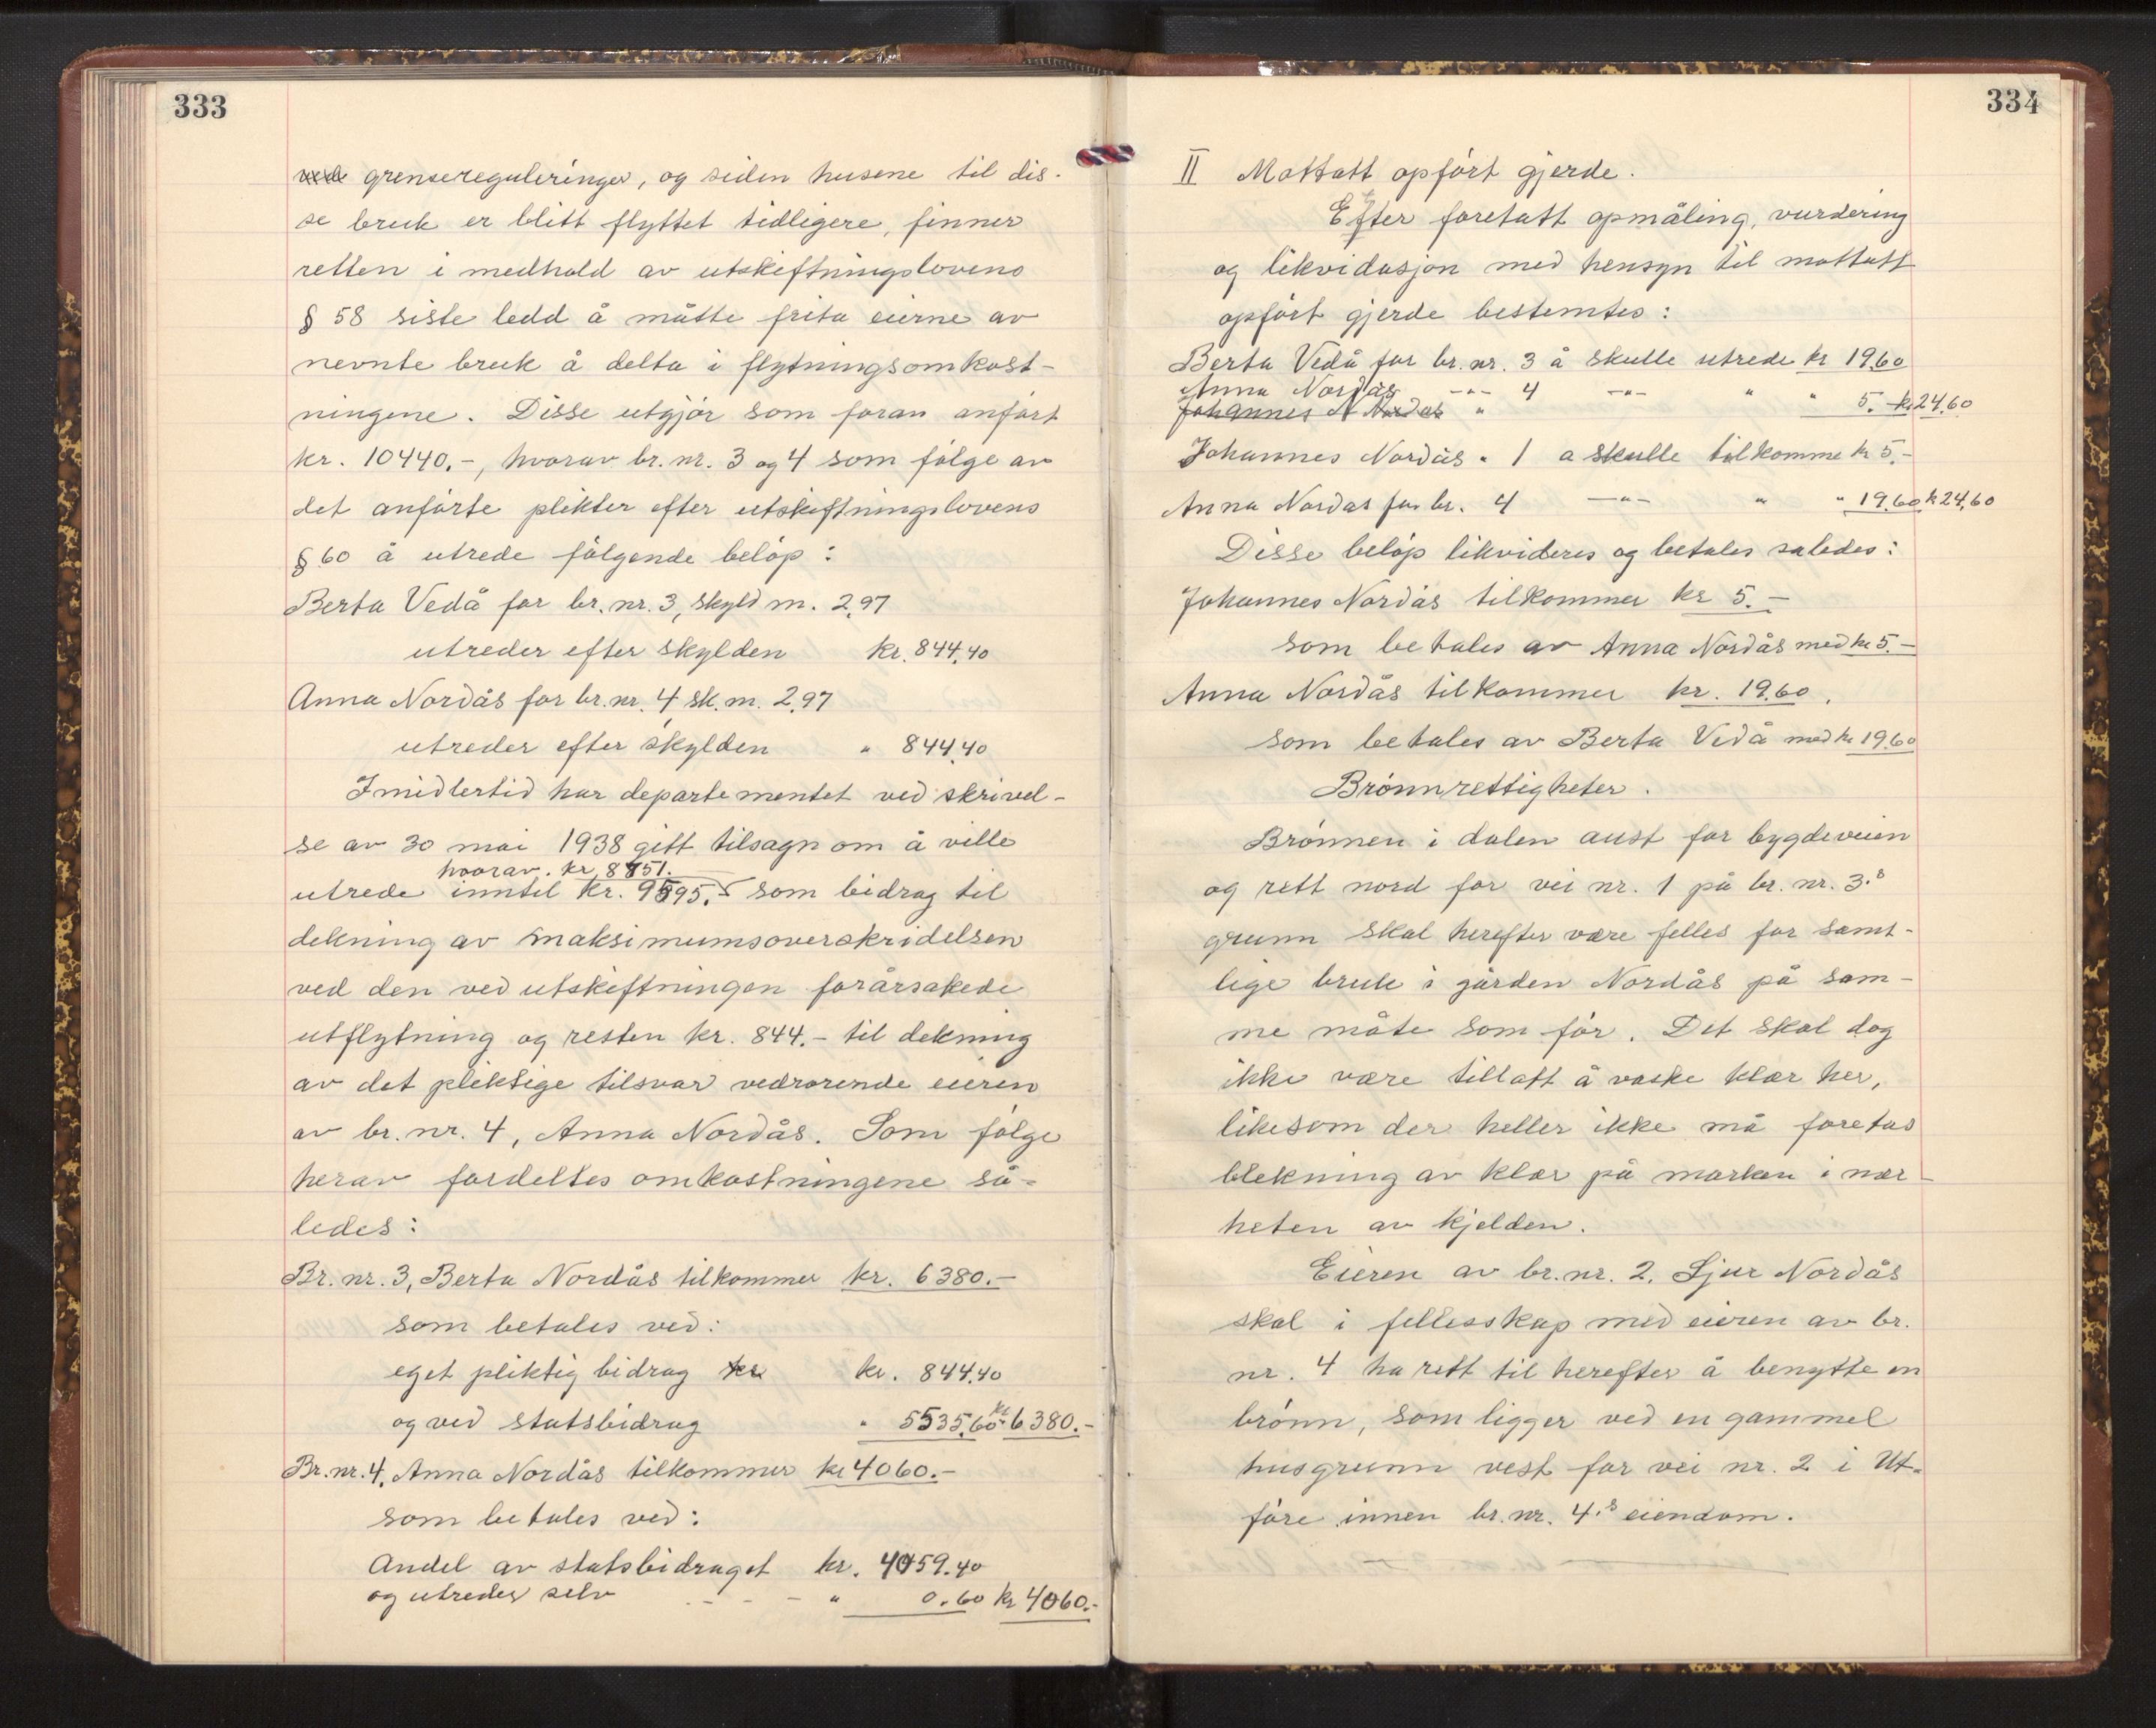 333
grensereguleringer, og siden husene til dis-
se bruk er blitt flyttet tidligere, finner
retten i medhold av utskiftningslovens
§ 58 siste ledd å måtte frita eierne av
nevnte bruk å delta i flytningsomkost-
ningene. Disse utgjør som foran anført
kr. 10440.-, hvorav br. nr. 3 og 4 som følge av
det anførte plikter efter utskiftningslovens
§ 60 å utrede følgende beløp:
Berta Vedå for br. nr. 3, skyld m. 2,97
utreder efter skylden kr. 844,40
Anna Nordås for br. nr. 4, sk. m. 2,97
utreder efter skylden " 844,40
Imidlertid har departementet ved skrivel-
se av 30 mai 1938 gitt tilsagn om å ville
hvorav kr. 8751.
utrede inntil kr. 9595.- som bidrag til
dekning av maksimumsoverskridelsen
ved den ved utskiftningen forårsakede
utflytning og resten kr. 844.- til dekning
av det pliktige tilsvar vedrørende eieren
av br. nr. 4, Anna Nordås. Som følge
herav fordeltes omkostningene så-
ledes:
Br. nr. 3, Berta Nordås tilkommer kr. 6380.-
som betales ved:
eget pliktig bidrag kr kr. 844,40
og ved statsbidrag " 5535,60 kr 6380.-
Br. nr. 4, Anna Nordås tilkommer kr 4060.-
som betales ved:
Andel av statsbidraget kr. 4059.40
og utreder selv - - - " 0.60 kr 4060.-
334
II Mottatt opført gjerde.
Efter foretatt opmåling, vurdering
og likvidasjon med hensyn til mottatt
opført gjerde bestemtes:
Berta Vedå for br. nr. 3 å skulle utrede kr 19,60
Anna Nordås -"- 4 -"- " " 5.- kr 24,60
Johannes N Nordås "
Johannes Nordås " 1 a skulle tilkomme kr 5.-
Anna Nordas for br. 4 -"- " " 19,60 kr 24,60
Disse beløp likvideres og betales saledes:
Johannes Nordås tilkommer kr 5.-
som betales av Anna Nordås med kr 5.-
Anna Nordås tilkommer kr. 19,60.
som betales av Berta Vedå med kr 19,60
Brønnrettigheter.
Brønnen i dalen aust for bygdeveien
og rett nord for vei nr. 1 på br. nr. 3.s
grunn skal herefter være felles for samt-
lige bruk i gården Nordås på sam-
me måte som før. Det skal dog
ikke være tillatt å vaske klær her,
likesom der heller ikke må foretas
blekning av klær på marken i nær-
heten av kjelden.
Eieren av br. nr. 2. Sjur Nordås
skal i fellesskap med eieren av br.
nr. 4 ha rett til herefter å benytte en
brønn, som ligger ved en gammel
husgrunn vest for vei nr. 2 i Ut-
føre innen br. nr. 4.s eiendom.